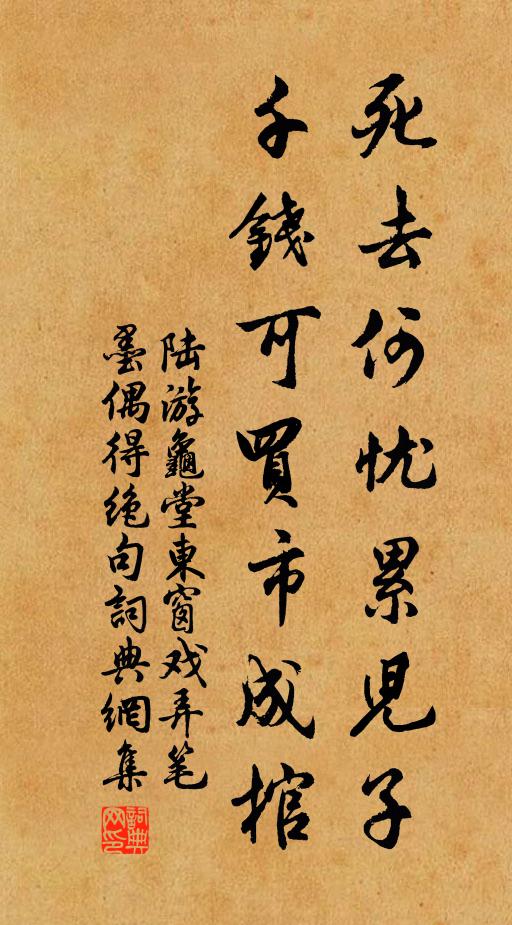 死去何忧累児子
千錢可買市成棺
陆游龜堂東窗戏弄笔
墨偶得绝句詞典網集
詞典网印